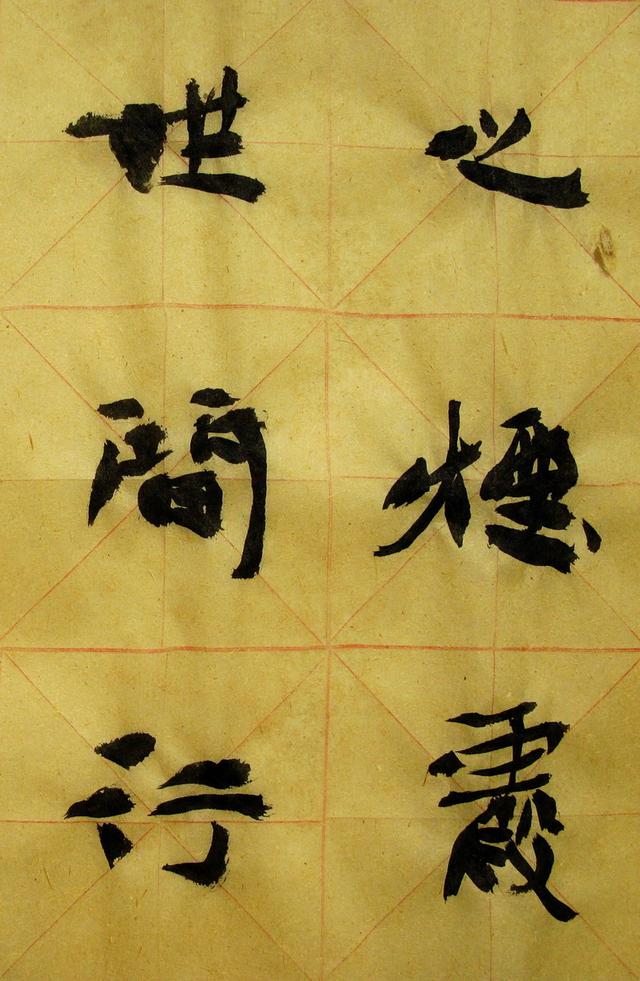 之煙霞
世間行